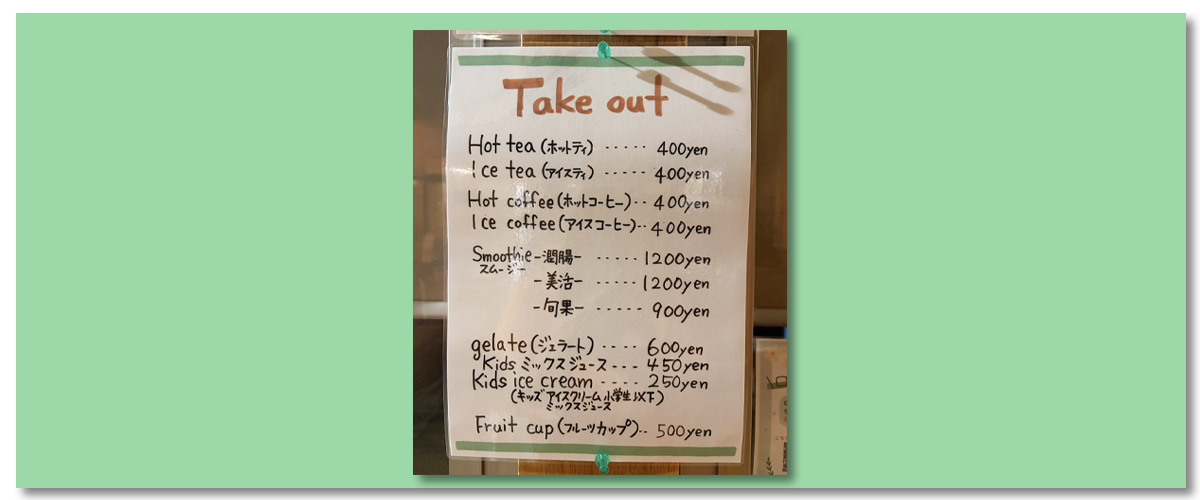 Take out
Hot tea (ホットティ) ····· 400yen
Ice tea (アイスティ) ····· 400yen
Hot coffee (ホットコーヒー)·· 400yen
Ice coffee (アイスコーヒー)·· 400yen
Smoothie -潤腸- ····· 1200yen
スムージー
-美活- ····· 1200yen
-旬果- ····· 900yen
gelate (ジェラート) ···· 600yen
Kids ミックスジュース --- 450yen
Kids ice cream ---- 250yen
(キッズ アイスクリーム 小学生以下)
ミックスジュース
Fruit cup (フルーツカップ)·· 500yen